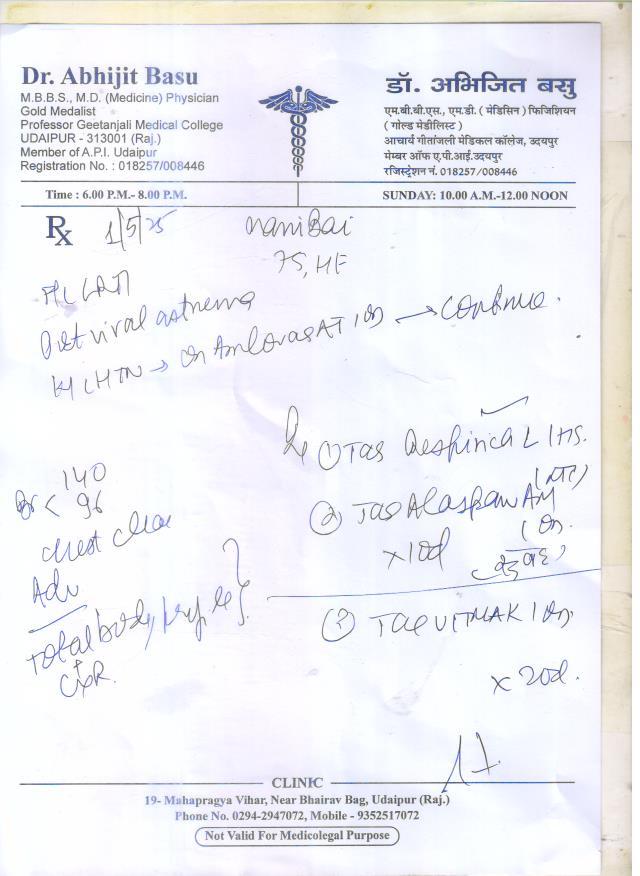 Dr. Abhijit Basu
M.B.B.S., M.D. (Medicine) Physician
Gold Medalist
Professor Geetanjali Medical College
UDAIPUR - 313001 (Raj.)
Member of A.P.I. Udaipur
Registration No. : 018257/008446
डॉ. अभिजित बसु
एम.बी.बी.एस., एम.डी. ( मेडिसिन ) फिजिशियन
( गोल्ड मेडीलिस्ट )
आचार्य गीतांजली मेडिकल कॉलेज, उदयपुर
मेम्बर ऑफ ए.पी.आई.उदयपुर
रजिस्ट्रेशन नं. 018257/008446
Time : 6.00 P.M.- 8.00 P.M.
SUNDAY: 10.00 A.M.-12.00 NOON
Rx 1/5/25
Nani Bai
75,
Post viral
HTN → → continue.
① Tab L
BP < 140
96
chest clear
② Tab AM
x 10d
Adv
Total body
+
CXR.
③ Tab VITMAK 1 OD
x 20d.
CLINIC
19- Mahapragya Vihar, Near Bhairav Bag, Udaipur (Raj.)
Phone No. 0294-2947072, Mobile - 9352517072
Not Valid For Medicolegal Purpose